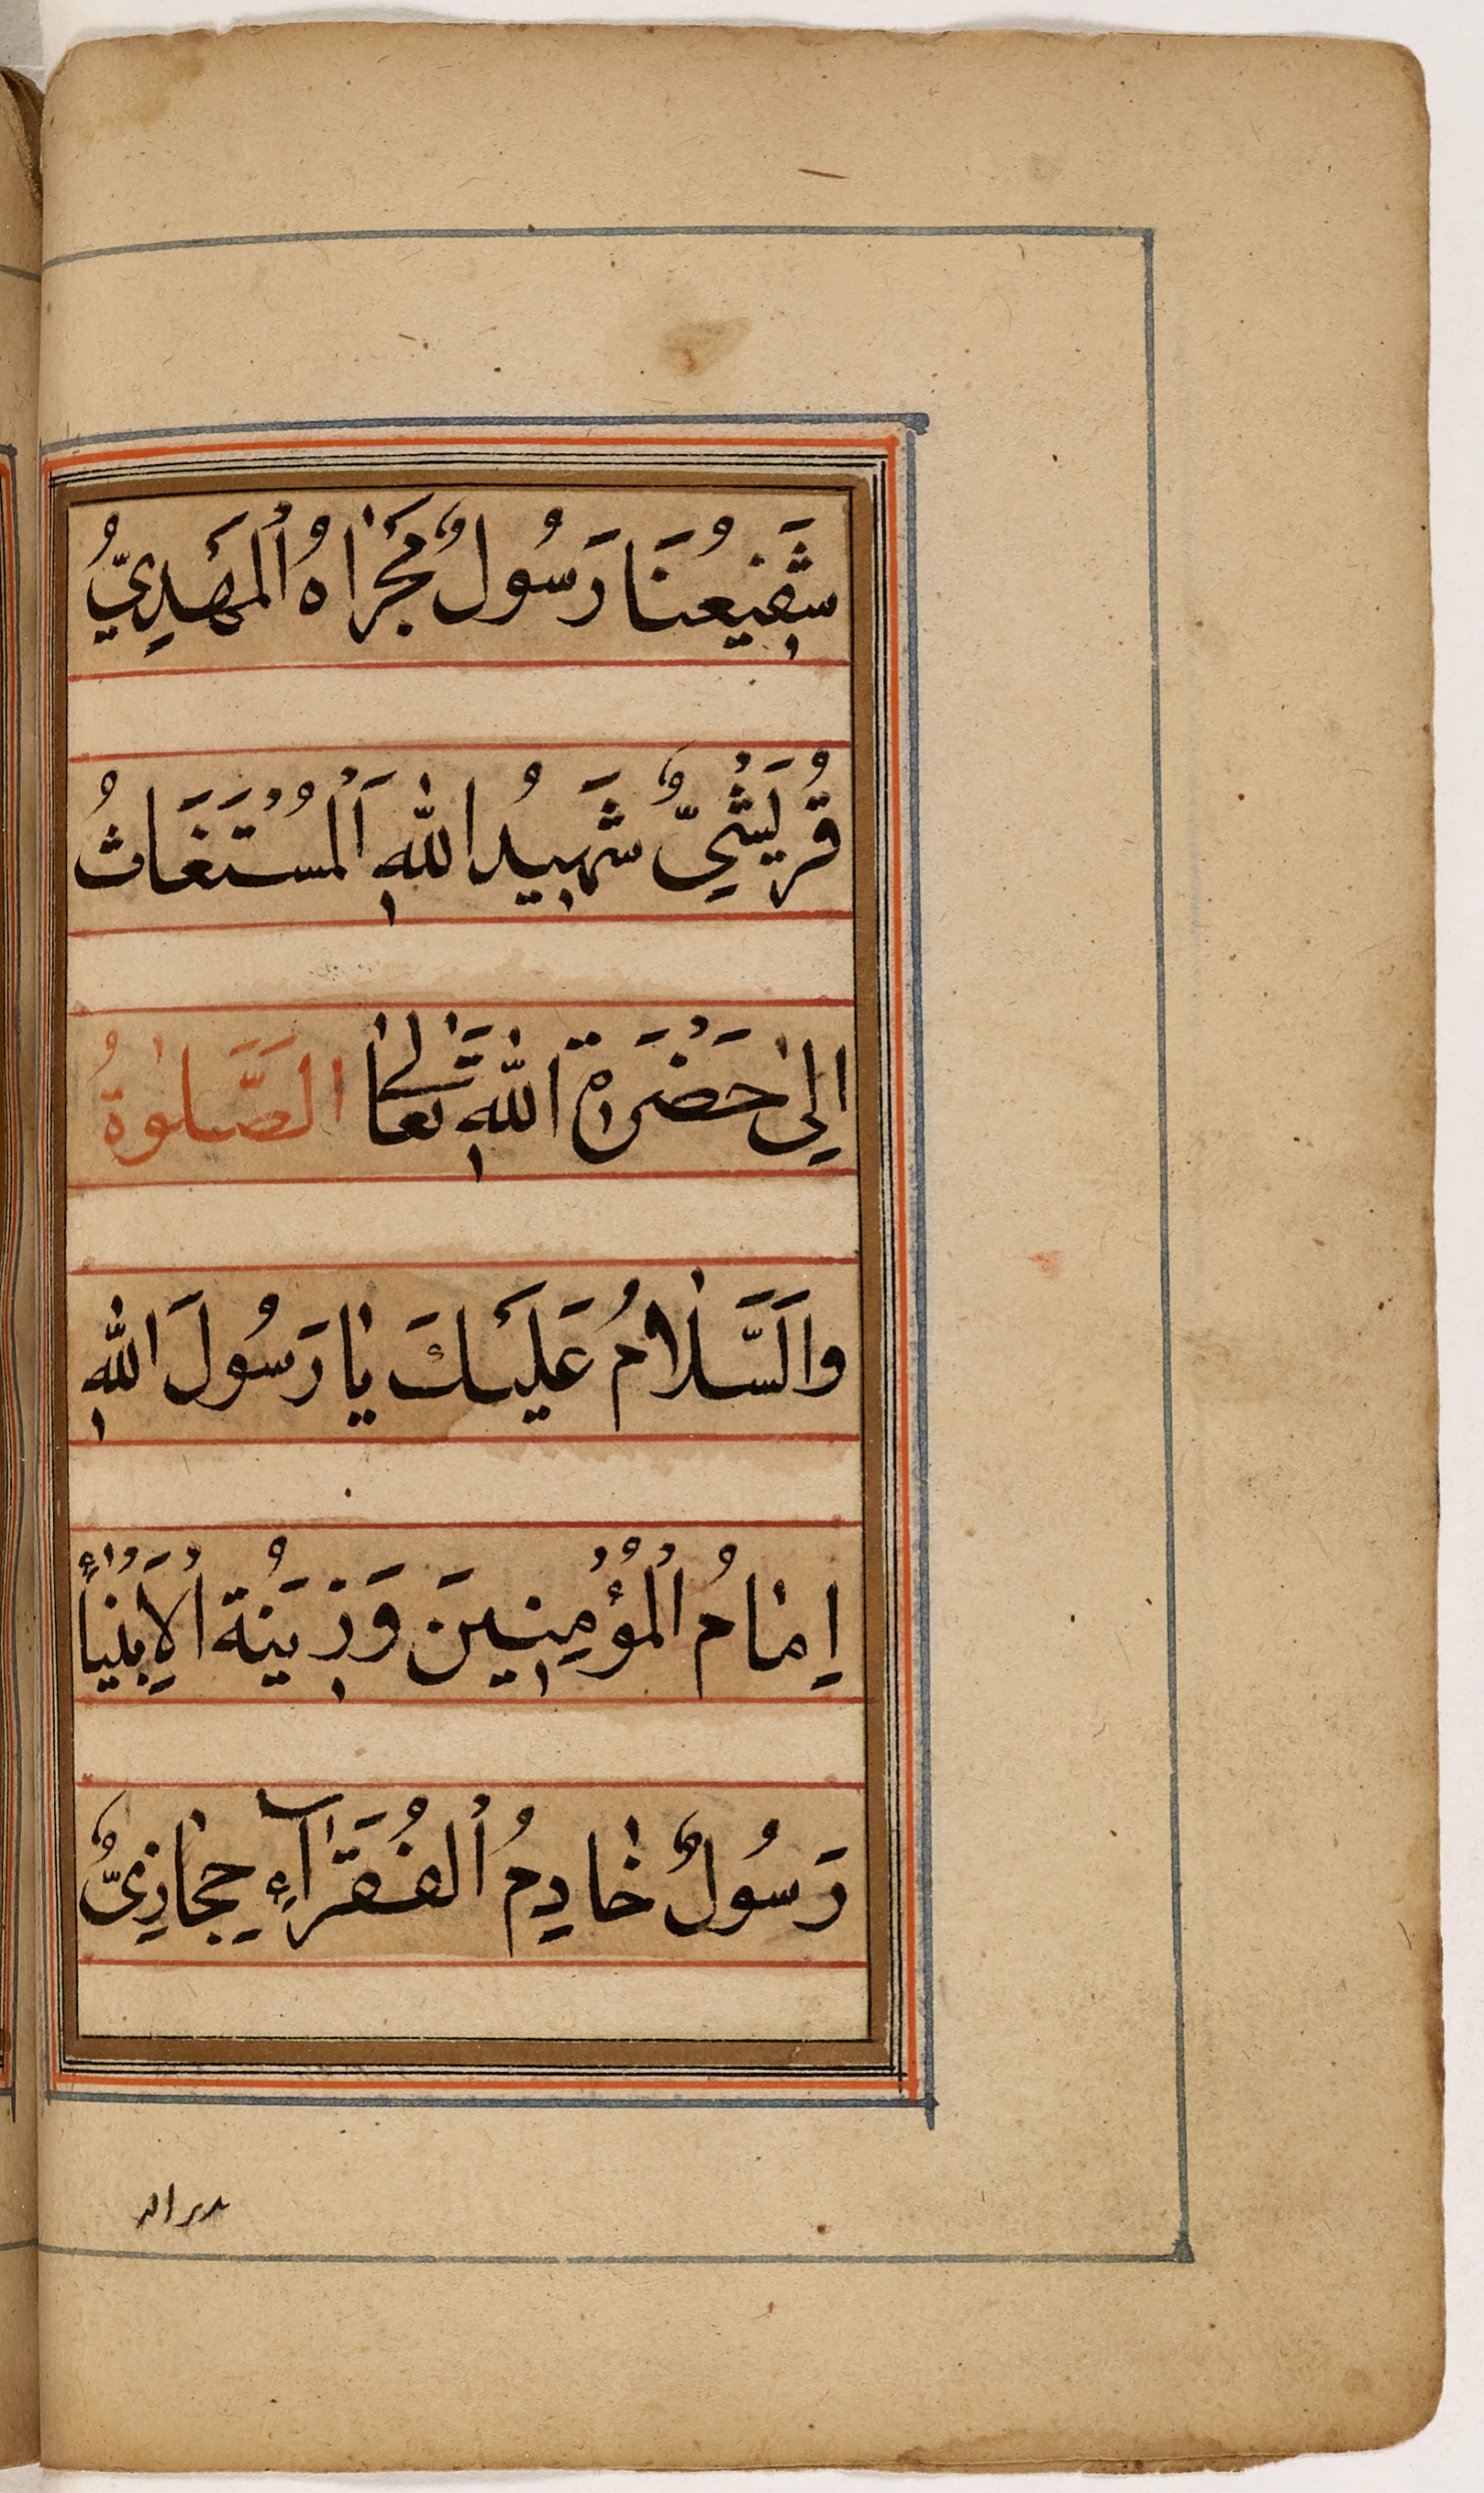 شَفِيعُنَا رَسُولٌ مَجْزَاهُ ٱلْمَهْدِيُّ
قُرَيْشِيٌّ شَهِيدُ اللهِ اَلْمُسْتَغَاثُ
اِلىٰ حَضْرَةِ اللهِ تَعَالىٰ الصَّلٰوةُ
وَالسَّلَامُ عَلَيْكَ يَا رَسُولَ اللهِ
اِمَامُ ٱلْمُؤْمِنِينَ وَزِينَةُ الْاَنْبِيَاءِ
رَسُولٌ خَادِمُ ٱلْفُقَرَآءِ حِجَازِيٌّ